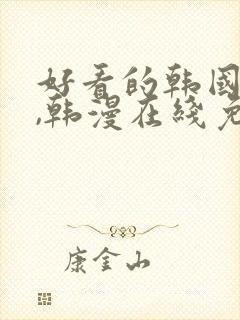 好看的韩国
,韩漫在线免
康金山